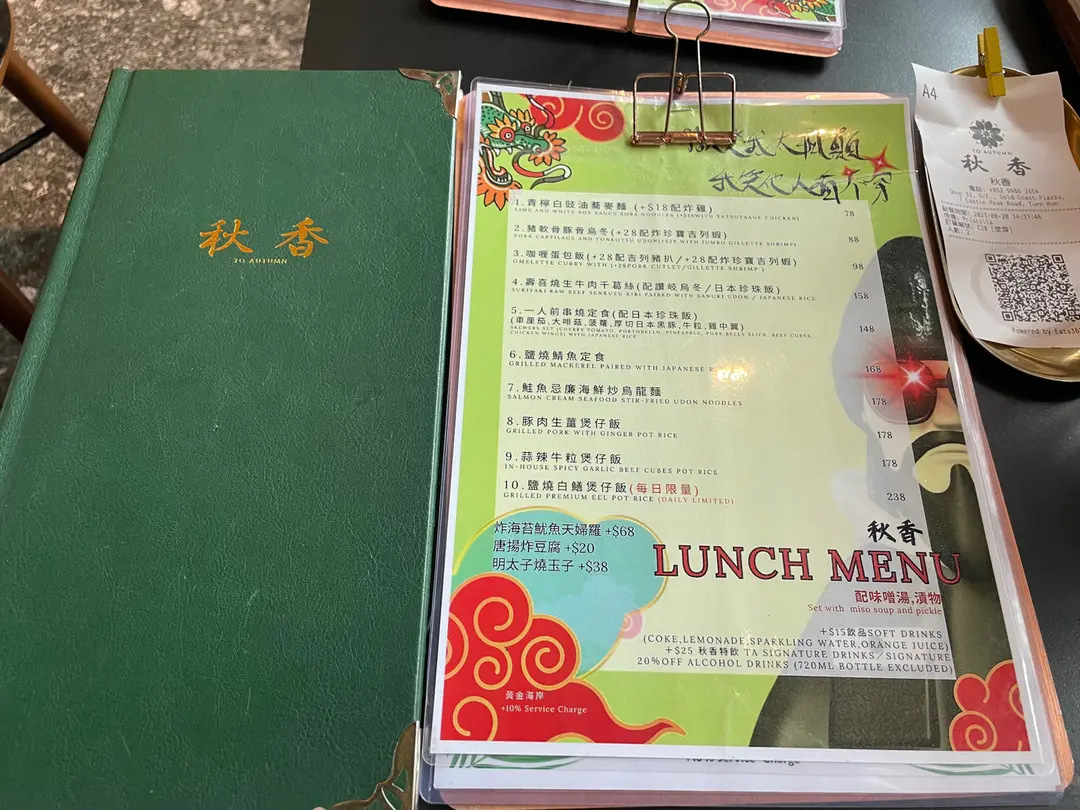 秋香
TO AUTUMN
我笑他人看不穿
1.青檸白豉油蕎麥麵 (+$18配炸雞) 78
LIME AND WHITE SOY SAUCE SOBA NOODLES (+$18WITH TATSUTAAGE CHICKEN)
2.豬軟骨豚骨烏冬(+28配炸珍寶吉列蝦) 88
PORK CARTILAGE AND TONKOTSU UDON(+$28 WITH JUMBO GILLETTE SHRIMP)
3.咖喱蛋包飯(+28配吉列豬扒/+28配炸珍寶吉列蝦) 98
OMELETTE CURRY WITH (+28PORK CUTLET/GILLETTE SHRIMP )
4.壽喜燒生牛肉千葛絲(配讚岐烏冬/日本珍珠飯) 158
SUKIYAKI RAW BEEF SENKUZU KIRI PAIRED WITH SANUKI UDON / JAPANESE RICE
5.一人前串燒定食(配日本珍珠飯) 148
(車厘茄,大啡菇,菠蘿,厚切日本黑豚,牛粒,雞中翼)
SKEWERS SET (CHERRY TOMATO, PORTOBELLO, PINEAPPLE, PORK BELLY SLICE, BEEF CUBES,
CHICKEN WINGS) WITH JAPANESE RICE
6.鹽燒鯖魚定食 168
GRILLED MACKEREL PAIRED WITH JAPANESE
7.鮭魚忌廉海鮮炒烏龍麵 178
SALMON CREAM SEAFOOD STIR-FRIED UDON NOODLES
8.豚肉生薑煲仔飯 178
GRILLED PORK WITH GINGER POT RICE
9.蒜辣牛粒煲仔飯 178
IN-HOUSE SPICY GARLIC BEEF CUBES POT RICE
10.鹽燒白鱔煲仔飯(每日限量) 238
GRILLED PREMIUM EEL POT RICE (DAILY LIMITED)
炸海苔魷魚天婦羅 +$68
唐揚炸豆腐 +$20
明太子燒玉子 +$38
秋香
LUNCH MENU
配味噌湯,漬物
Set with miso soup and pickle
+$15飲品SOFT DRINKS
(COKE,LEMONADE,SPARKLING WATER,ORANGE JUICE)
+$25 秋香特飲 TA SIGNATURE DRINKS/SIGNATURE
20%OFF ALCOHOL DRINKS (720ML BOTTLE EXCLUDED)
黃金海岸
+10% Service Charge
A4
TO AUTUMN
秋香
秋香
Powered by Eats36